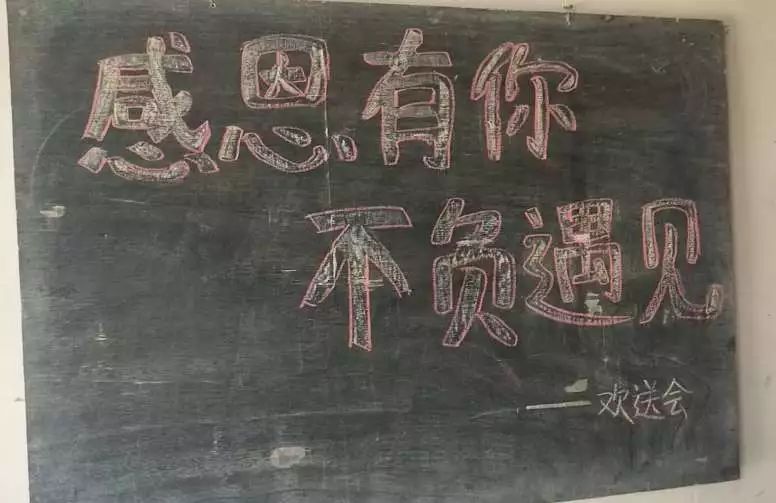 感恩有你
不负遇见
——欢送会